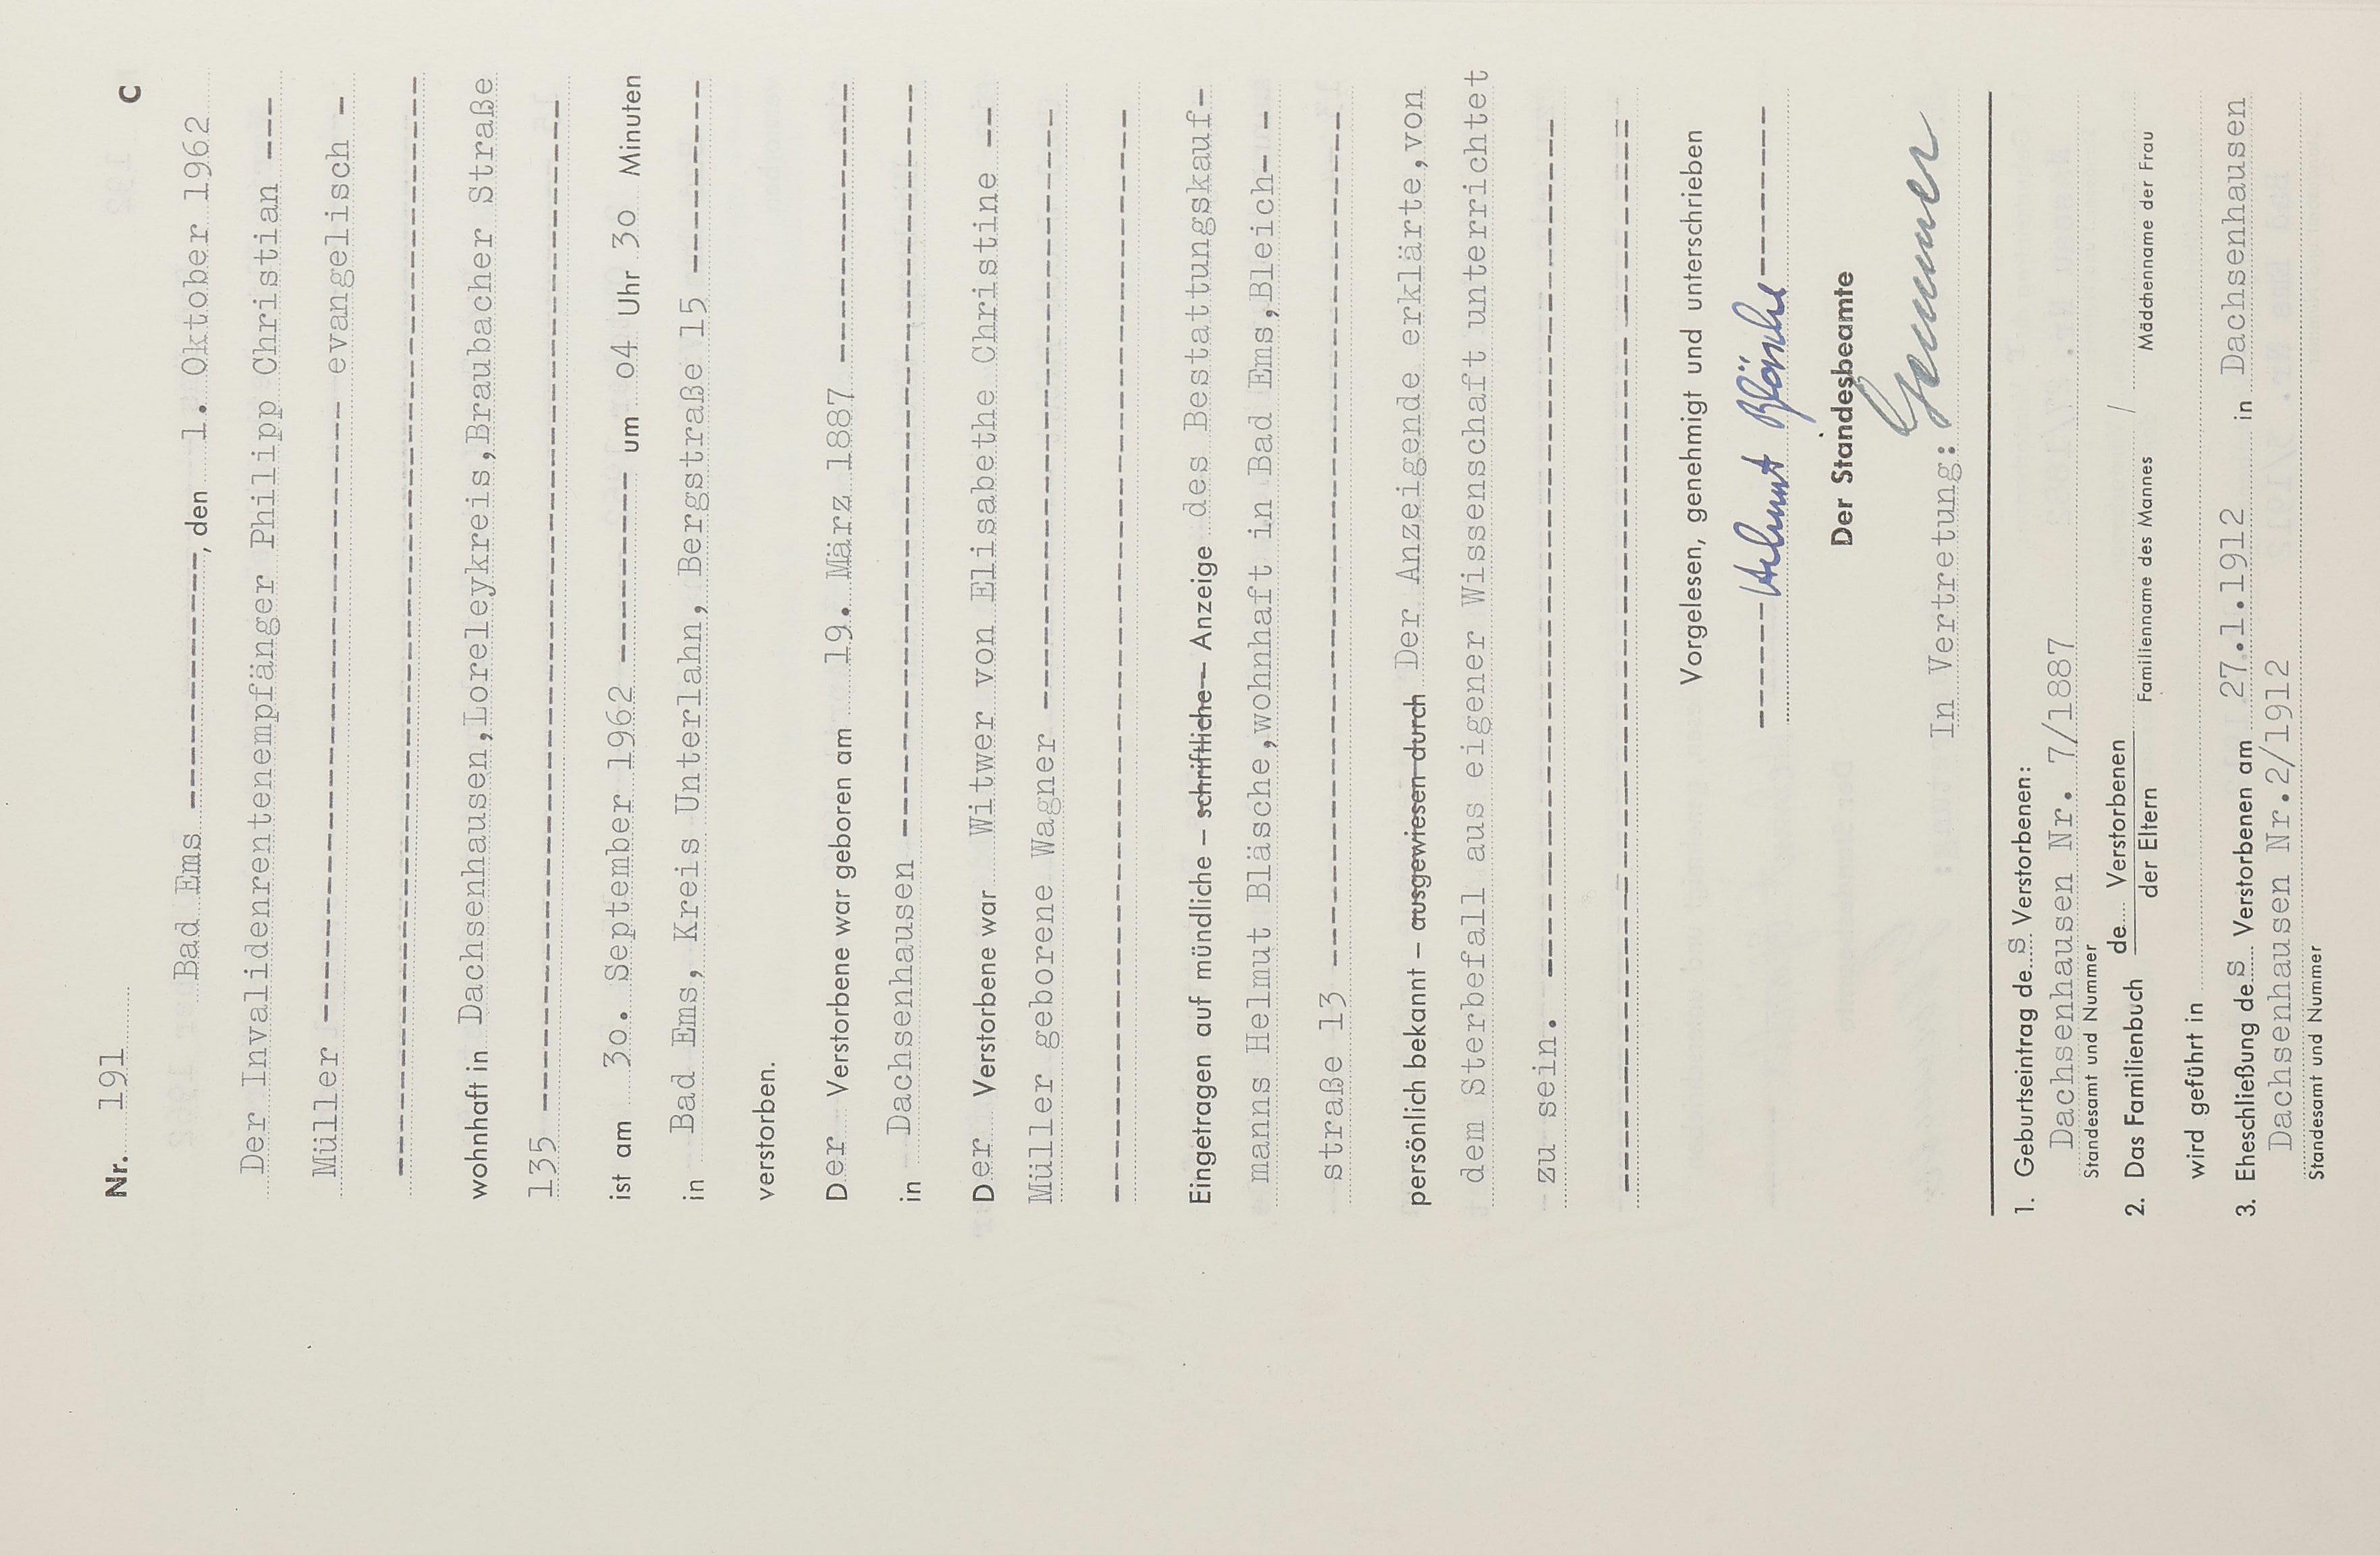 Nr. 191 C
Bad Ems --------------, den 1. Oktober 1962
Der Invalidenrentenempfänger Philipp Christian ---
Müller ---------------------------------- evangelisch -
------------------------------------------------------------
wohnhaft in Dachsenhausen,Loreleykreis,Braubacher Straße
135 --------------------------------------------------------
ist am 3o. September 1962 ---------- um o4 Uhr 3o Minuten
in Bad Ems, Kreis Unterlahn, Bergstraße 15 ----------
verstorben.
Der Verstorbene war geboren am 19. März 1887 ---------------
in Dachsenhausen ----------------------------------------
Der Verstorbene war Witwer von Elisabethe Christine --
Müller geborene Wagner --------------------------------
------------------------------------------------------------
Eingetragen auf mündliche – schriftliche – Anzeige des Bestattungskauf-
manns Helmut Bläsche,wohnhaft in Bad Ems,Bleich- -
straße 13 ----------------------------------------------
persönlich bekannt – ausgewiesen durch Der Anzeigende erklärte,von
dem Sterbefall aus eigener Wissenschaft unterrichtet
zu sein. ----------------------------------------------
------------------------------------------------------------
Vorgelesen, genehmigt und unterschrieben
------- Helmut Bläsche ---------
Der Standesbeamte
In Vertretung:
1. Geburtseintrag des Verstorbenen:
Dachsenhausen Nr. 7/1887
Standesamt und Nummer
2. Das Familienbuch de Verstorbenen /
der Eltern Familienname des Mannes Mädchenname der Frau
wird geführt in
3. Eheschließung des Verstorbenen am 27.1.1912 in Dachsenhausen
Dachsenhausen Nr.2/1912
Standesamt und Nummer